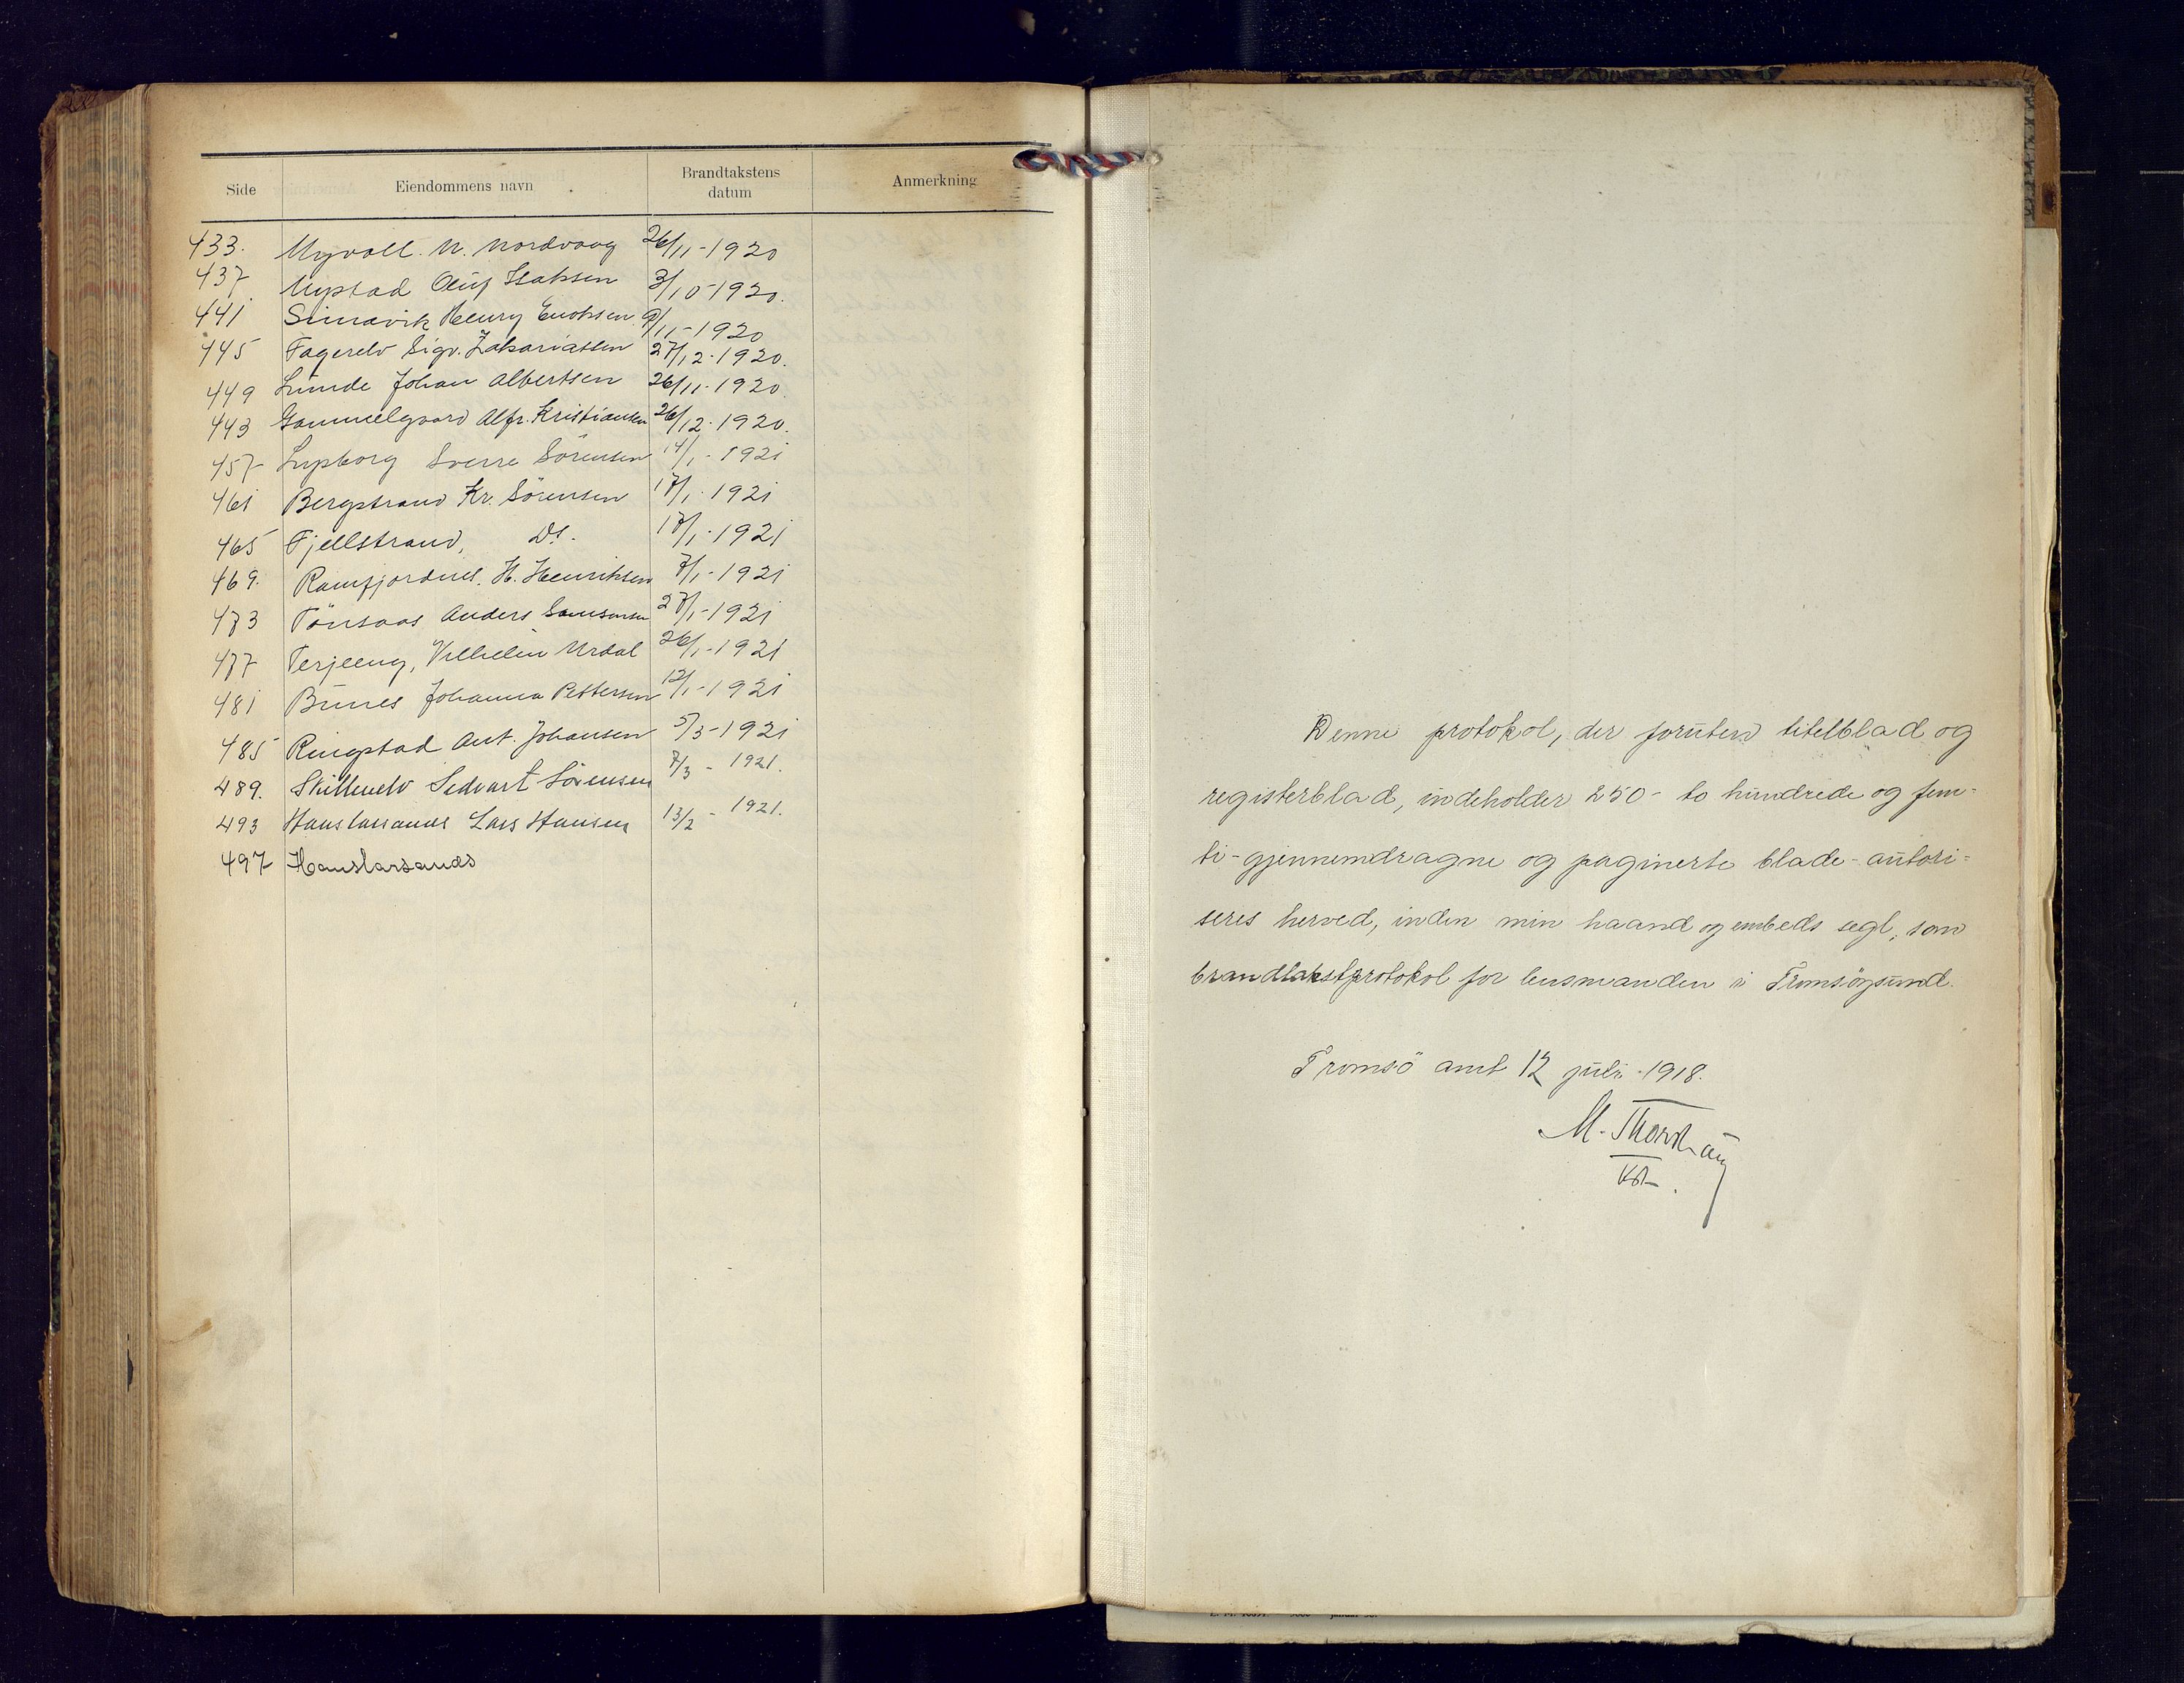 Side Eiendommens navn Brandtakstens datum Anmerkning
433. Myvoll. N. Nordvaag 26/11-1920
437 Mystad Oluf Isaksen 3/10-1920.
441 Simavik Henry Enoksen 9/11-1920
445 Fagerelv Sigv. Zakariassen 27/12-1920.
449 Lunde Johan Albertsen 26/11-1920.
443 Gammelgaard Alfr. Kristiansen 26/12-1920.
457 Lysborg Sverre Sörensen 14/1-1921
461 Bergstrand Kr. Sörensen 17/1-1921
465 Fjellstrand, Ds. 17/1-1921
469. Ramfjordnes. H. Henriksen 7/1-1921
473 Tönsaas Anders Samsonsen 27/1-1921
477 Terjeeng, Vilhelm Urdal 26/1-1921
481 Bunes Johanna Pettersen 12/1-1921
485 Ringstad Ant. Johansen 5/3-1921
489. Skittenelv Sedvart Sörensen 7/3-1921.
493 Hanslarsanes Lars Hansen 13/2-1921.
497 Hanslarsanes
Denne protokol, der foruten titelblad og
registerblad, indeholder 250- to hundrede og fem-
ti-gjennemdragne og paginerte blade-autori-
seres herved, under min haand og embeds segl, som
brandtakstprotokol for lensmanden i Tromsöysund.
Tromsö amt 12 juli 1918.
M. Thorshaug